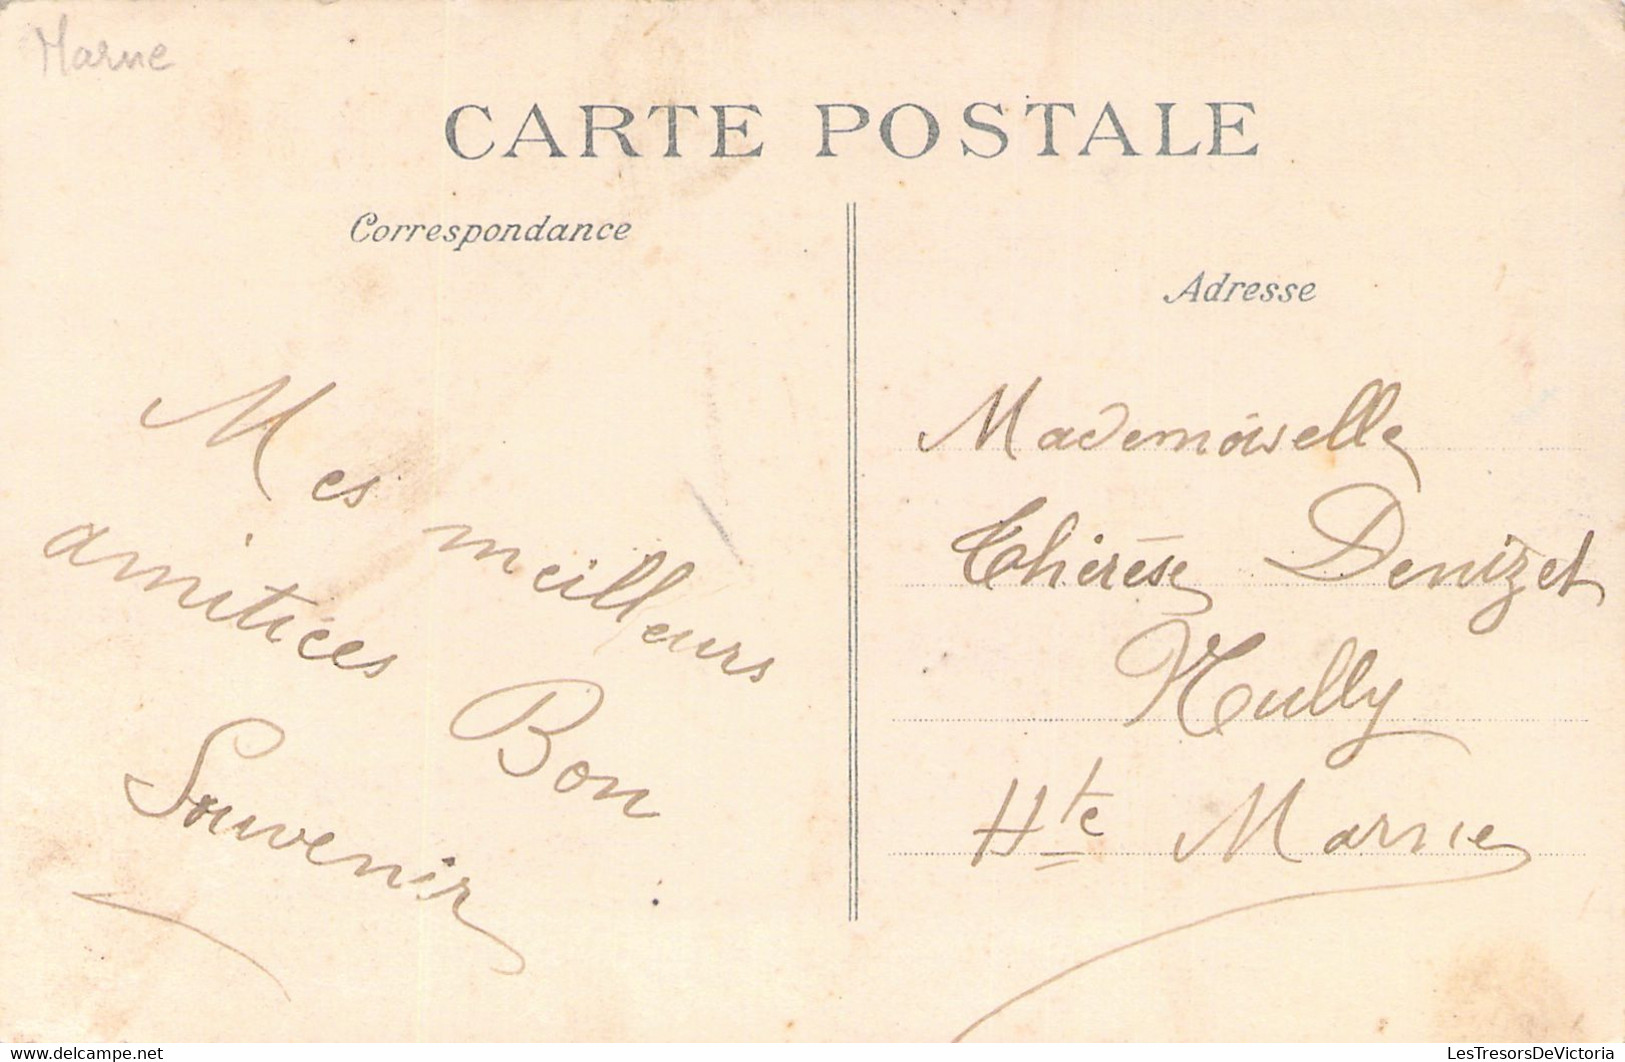 Marne
CARTE POSTALE
Correspondance
Mes meilleurs
amitiées Bon
Souvenir
Adresse
Mademoiselle
Thérèse Denizet
Nully
Hte Marne
LesTresorsDeVictoria